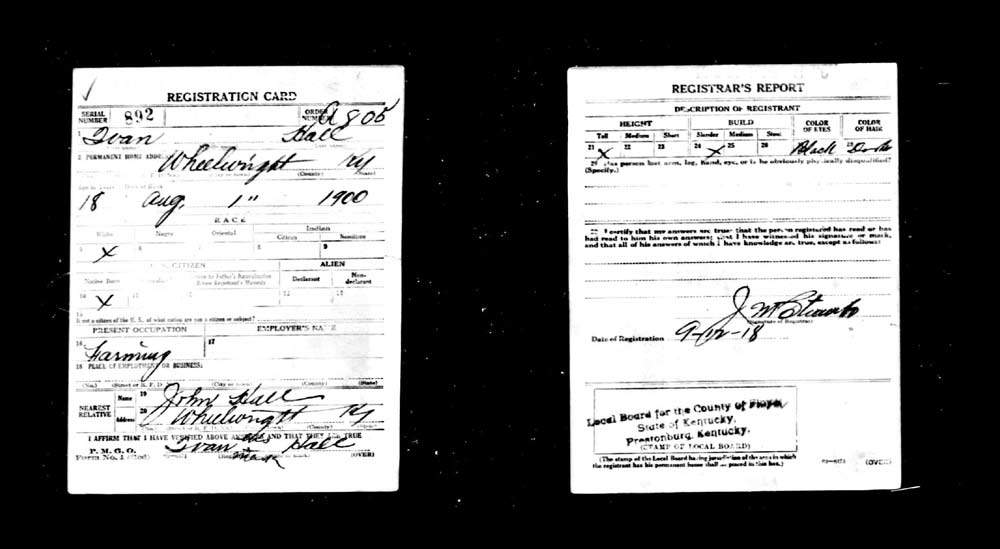 REGISTRATION CARD
SERIAL NUMBER 892 ORDER NUMBER A805
1 Ivan Hall
2 PERMANENT HOME ADDRESS Wheelwright Ky
(County) (State)
Age in Years Date of Birth
18 Aug. 1" 1900
RACE
White Negro Oriental Indian
Citizen Noncitizen
5 X 6 8 9
U. S. CITIZEN ALIEN
Native Born Declarant Non-declarant
10 X 11 12 13
15
If not a citizen of the U. S., of what nation are you a citizen or subject?
PRESENT OCCUPATION EMPLOYER'S NAME
16 Farming 17
18 PLACE OF EMPLOYMENT OR BUSINESS:
(No.) (Street or R. F. D.) (City or town) (County) (State)
NEAREST RELATIVE Name 19 John Hall
Address 20 Wheelwright Ky
I AFFIRM THAT I HAVE VERIFIED ABOVE ANSWERS AND THAT THEY ARE TRUE
P. M. G. O.
Form No. 1 (Red) Ivan his mark Hall (OVER)
REGISTRAR'S REPORT
DESCRIPTION OF REGISTRANT
HEIGHT BUILD COLOR OF EYES COLOR OF HAIR
Tall Medium Short Slender Medium Stout
21 X 22 23 24 X 25 26 Black 28 Dark
29 Has person lost arm, leg, hand, eye, or is he obviously physically disqualified?
(Specify.)
30 I certify that my answers are true; that the person registered has read or has
had read to him his own answers; that I have witnessed his signature or mark,
and that all of his answers of which I have knowledge are true, except as follows:
J. M. Stumbo
(Signature of Registrar)
Date of Registration 9-12-18
Local Board for the County of Floyd,
State of Kentucky,
Prestonburg, Kentucky.
(STAMP OF LOCAL BOARD)
(The stamp of the Local Board having jurisdiction of the area in which
the registrant has his permanent home shall be placed in this box.)
(OVER)